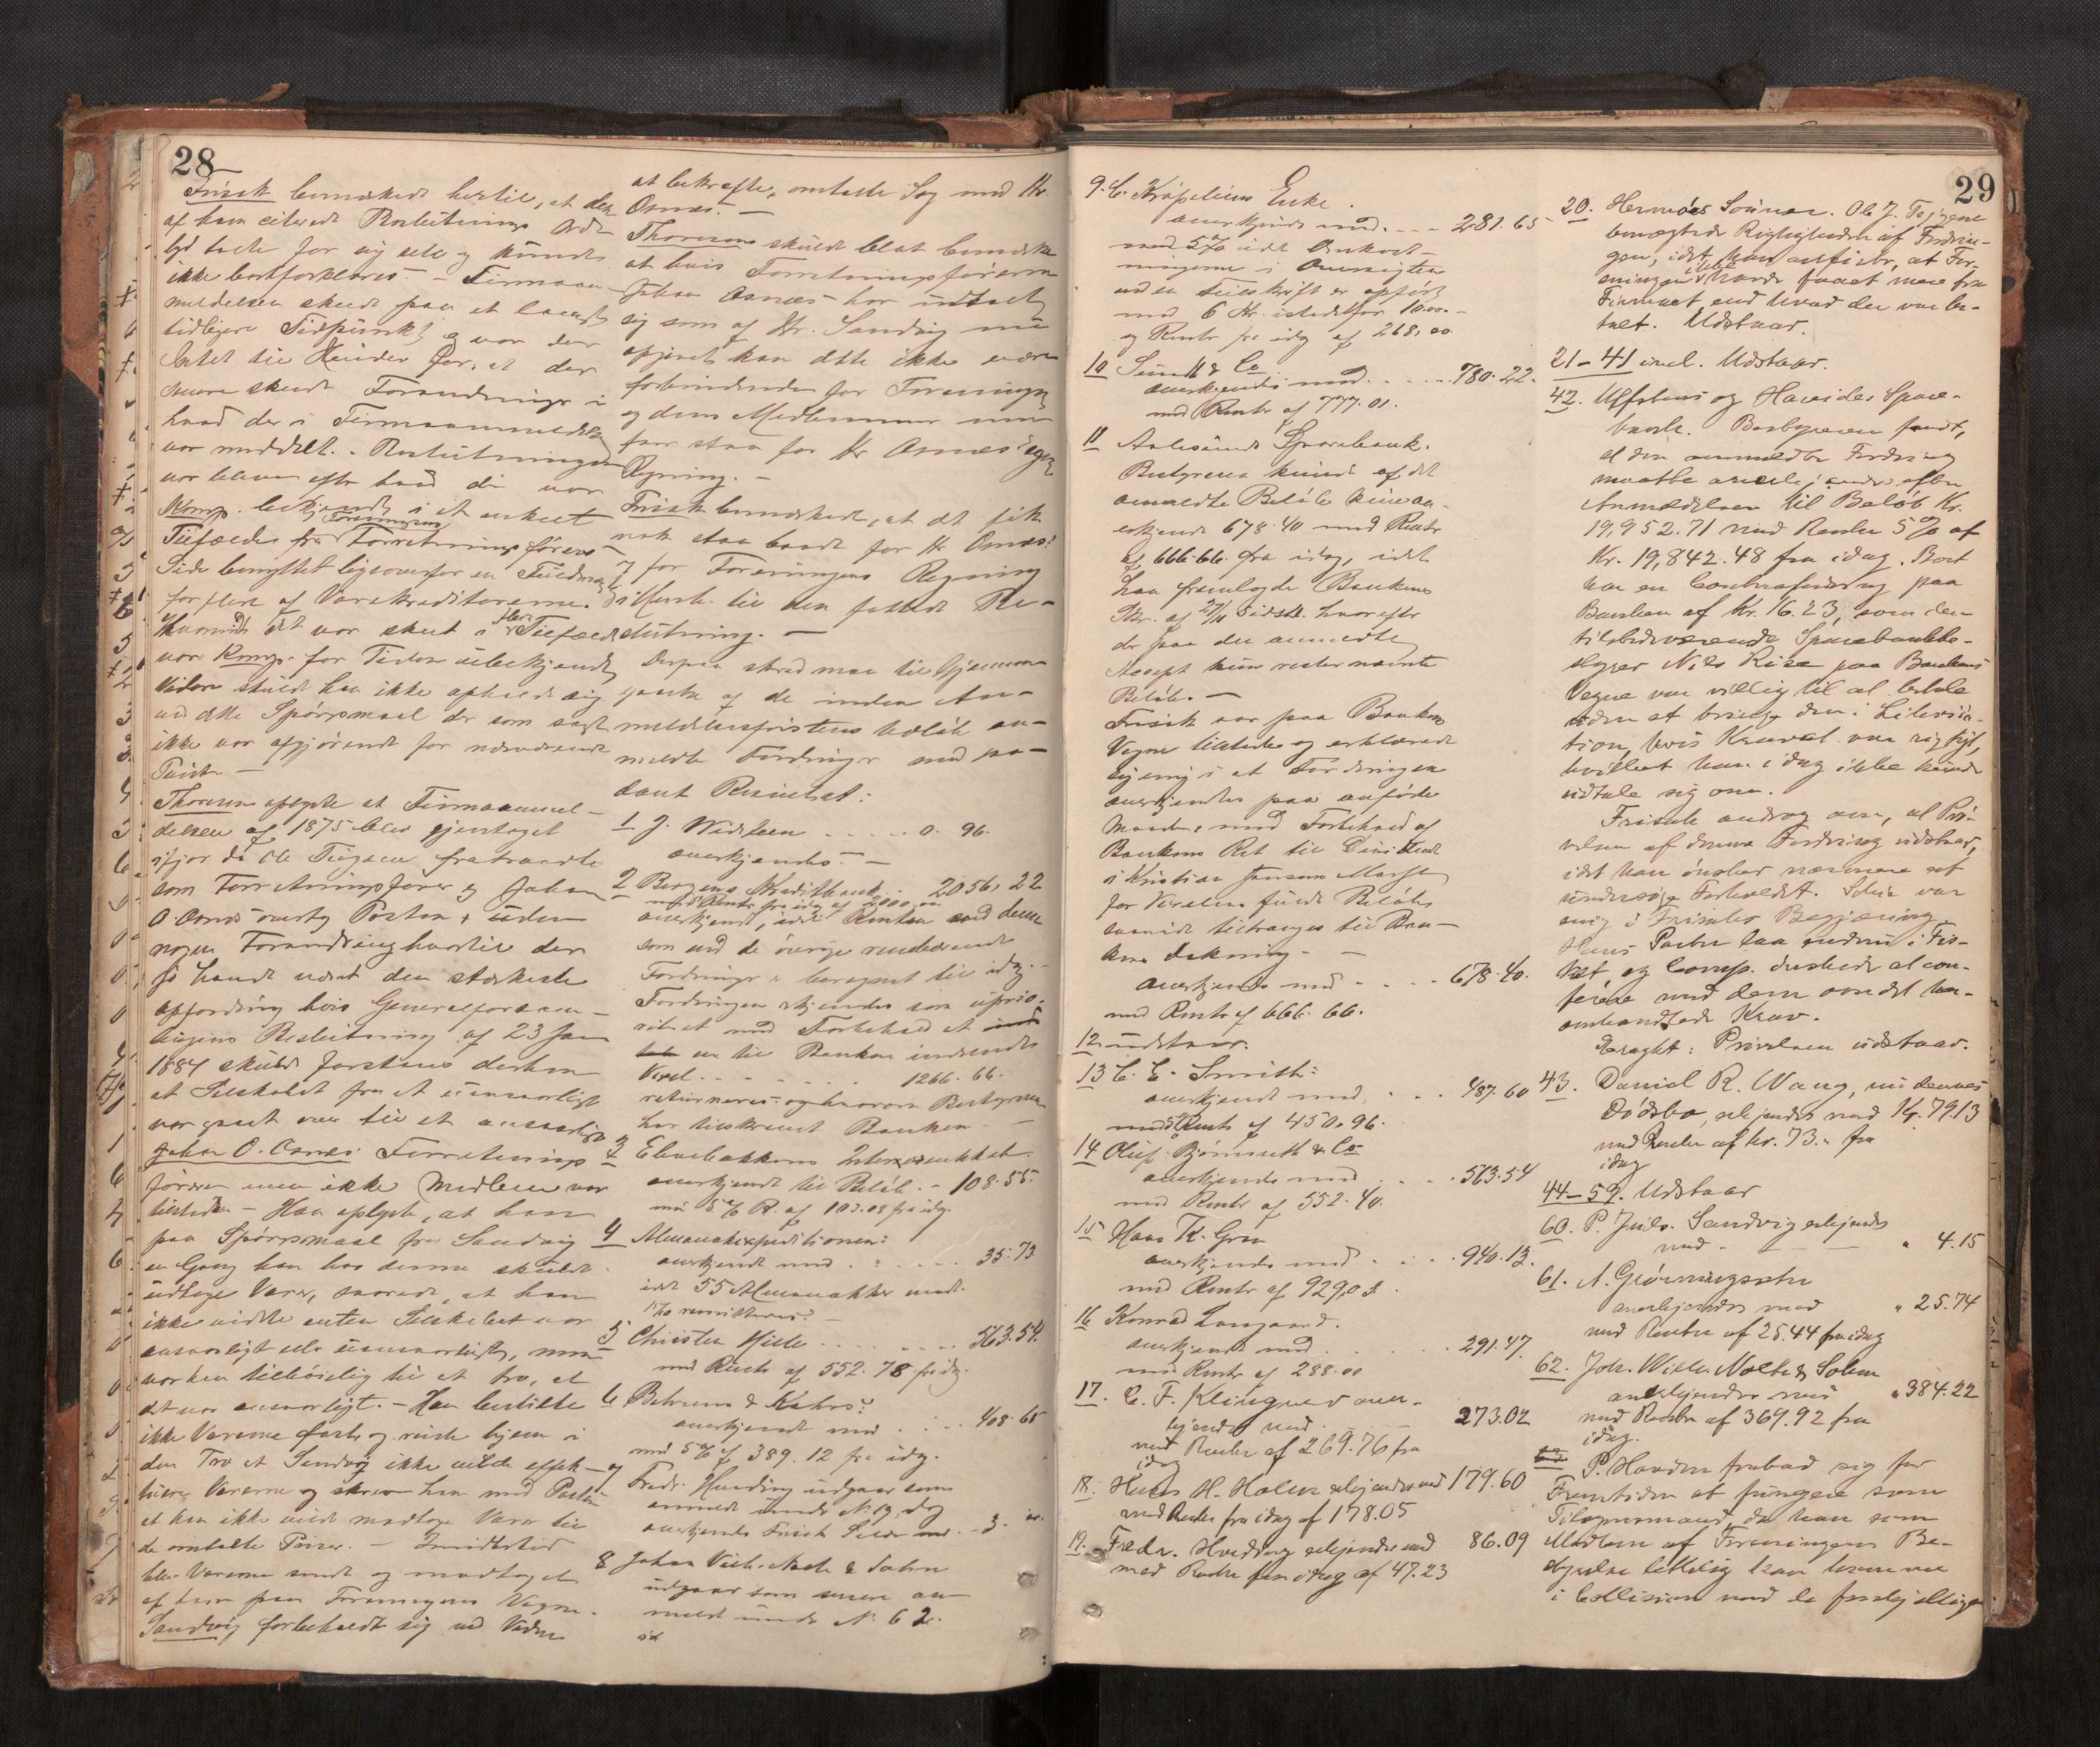 28
Frisak bemærkede hertil, at den
af ham citerede Beslutnings Ord-
lyd talte for sig selv og kunde
ikke bortforklares. – Firmaan-
meldelsen skede paa et langt
tidligere Tidspunkt og var der
Intet til Hinder for, at der
senere skede Forandringer i
hvad der i Firmaanmeldelsen
var meddelt. – Beslutningen
var bleven efter hvad der var
Komp. bekjendt i et enkelt
Foreningens
Tilfælde fra Forretningsførerens
Side benyttet ligeoverfor en Fuldmægtig
for flere af Varekreditorerne.
Hvorvidt det var skeet i flere Tilfælde
var Komp. for Tiden ubekjendt
Videre skulde han ikke opholde sig
ved dette Spørgsmaal der som sagt
ikke var afgjørende for nærværende
Tvist. –
Thoresen oplyste at Firmaanmel-
delsen af 1875 blev gjentaget
ifjor da Ole Tuxgaen fratraadte
som Forretningsfører og Johan
O. Osnæs overtog Posten, uden
nogen Forandring hvortil der
jo havde været den stærkeste
opfordring hvis Generalforsam-
lingens Beslutning af 23 Jan
1884 skulde forstaaes derhen
at Selskabet fra et uansvarligt
var gaaet over til et ansvarligt
Johan O. Osnæs Forretnings-
fører men ikke Medlem var
tilstede. – Han oplyste, at han
paa Spørgsmaal fra Sandvig
en Gang han hos denne skulde
udtage Varer, svarede, at han
ikke vidste enten Selskabet var
ansvarligt eller uansvarligt, men
var han tilbøielig til at tro, at
det var ansvarligt. – Han bestilte
ikke Varerne fast og reiste hjem i
den Tro at Sandvig ikke vilde effek-
tuere Varerne og skrev han med Posten
at han ikke vilde modtage Varer til
de omtalte Priser. – Imidlertid
blev Varerne sendt og modtaget
af ham paa Foreningens Vegne.
Sandvig forbeholdt sig ved Vidner
at bekræfte, omtalte Sag med Hr.
Osnæs. –
Thoresen skulde blot bemærke
at hvis Forretningsføreren
Johan Osnæs har udtalt
sig som af Hr. Sandvig nu
opgivet kan dette ikke være
forbindende for Foreningen
og dens Medlemmer men
faar staa for Hr Osnæs's egen
Regning. –
Frisak bemærkede, at det fik
nok staa baade for Hr Osnæs'
og for Foreningens Regning
i Henh. til den fattede Be-
slutning. –
Derpaa skred man til Gjennem-
gaaelse af de inden An-
meldelsesfristens Udløb an-
meldte Fordringer med saa-
dant Resultat:
1 J. Widsteen . . . . . 0. 96.
anerkjendes. –
2 Bergens Kreditbank . . 2056, 22
med Rente fra idag af 2000,00
anerkjendt, idet Renten ved denne
som ved de øvrige rentebærende
Fordringer er beregnet til idag. –
Fordringen erkjendes som uprio-
riteret med Forbehold at
en til Banken indsendt
Vexel . . . . . . 1266. 66.
returneres og hvorom Bestyreren
har tilskrevet Banken. –
3
anerkjendt til Beløb. – 108. 55.
med 5% R. af 103.08 fra idag.
4 Almanakexpeditionen:
anerkjendt med . . . . . 35. 73
idet 55 Almanakker
5 Christen . . . . . . 563. 54.
med Rente af 552. 78 fra idag.
6 Behrens & Kahrs:
anerkjendt med . . . 408. 65
med 5% af 389. 12 fra idag.
7 Fredr. Hveding udgaar som
anmeldt under N. 19, dog
anerkjendes Frisch . – 3.
8 Johan Vilh. Nolte & Sohn
udgaar som senere an-
meldt under N. 62.
29
9. C. Krøpeliens Enke.
anerkjendes med . . . 281. 65
med 5% idet Omkost-
ningerne i Oversigten
ved en Feilskrift er opført
med 6 Kr. istedetfor 10.00. –
og Rente fra idag af 268,00
10 Sundt & Co
anerkjendes med . . . . . 780. 22.
med Rente af 777. 01.
11 Aalesunds Sparebank.
Bestyreren kunde af det
anmeldte Beløb kun an-
erkjende 678. 40 med Rente
af 666. 66. fra idag, idet
han fremlagde Bankens
Skr. af 27/11 sidstl. hvorefter
der paa den anmeldte
Accept kun rester nævnte
Beløb. –
Frisak var paa Bankens
Vegne tilstede og erklærede
sig enig i at Fordringen
anerkjendes paa anførte
Maade, med Forbehold af
Bankens Ret til Dividende
i Kristian Jensens Masse
for Vexelens fulde Beløb
saavidt tiltrænges til Ban-
kens dækning. –
anerkjendes med . . . . 678. 40.
med Rente af 666. 66.
12. udstaar.
13 C. E. Smith:
anerkjendt med . . . . 487. 60
med Rente af 450. 96.
14 Oluf Bjørnseth & Co
anerkjendes med . . . . 563. 54
med Rente af 552. 40.
15 Hans K. Gran
anerkjendes med . . . . 940. 13.
med Rente af 929,05.
16 Konrad Langaard.
anerkjendt med . . . . . 291. 47.
med Rente af 288. 00
17. C. F. Klinguer aner-
kjendes med . . . . . 273.02
med Renter af 269.76 fra
idag
18. Hans H. Holm erkjendes med 179.60
med Renter fra idag af 178.05
19. Fredr. Hvedding erkjendes med 86.09
med Rente fra idag af 47.23
20. Hermods Sønner. Ole J.
benægtede Rigtigheden af Fordrin-
gen, idet han anfører, at For-
eningen ikke havde faaet mere fra
Firmaet end hvad der var be-
talt. Udstaar.
21–41 incl. Udstaar.
42. Ulfstens og Hareides Spare-
bank. Bestyreren fandt,
at den anmeldte Fordring
maatte anerkjendes efter
Anmeldelsen til Beløb Kr.
19,952.71 med Renter 5% af
Kr. 19,842.48 fra idag. Boet
har en Contrafordring paa
Banken af Kr. 16.23, som den
tilstedeværende Sparebankbe-
styrer Nils Rise paa Bankens
Vegne var villig til at betale
uden at bringe den i Likvida-
tion, hvis Kravet var rigtigt,
hvilket han idag ikke kunde
udtale sig om.
Frisak androg om, at Prø-
velsen af denne Fordring udstaar,
idet han ønsker nærmere at
undersøge Forholdet. Solie var
enig i Frisaks Begjæring.
Hans Parter laa endnu i Fis-
ket og Comp. ønskede at con-
ferere med dem om det her-
omhandlede Krav.
Eragtet: Prøvelsen udstaar.
43. Daniel R. Vaag, nu dennes
Dødsbo, erkjendes med 14. 79.13
med Renter af kr. 73. „ fra
idag
44–59. Udstaar
60. P. Juls. Sandvig erkjendes
med – – – „ 4.15
61. A. Gjørnings
anerkjendes med „ 25.74
med Renter af 25.44 fra idag
62. Joh. Wilh. Nolte & Sohn
anerkjendes med „ 384.22
med Renter af 369.92 fra
idag.
P. Havden frabad sig for
Fremtiden at fungere som
Tilsynsmand, da han som
Medlem af Foreningens Be-
styrelse lettelig kan komme
i Collision med de forskjellige